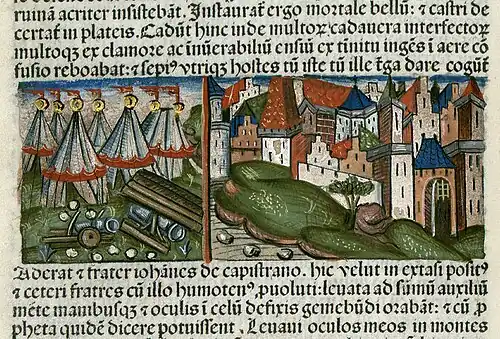 ruinā acriter insistebāt. Instauratˀ ergo mortale bellū: ⁊ castri de
certāt in plateis. Cadūt hinc inde multoꝝ cadauera interfectoꝝ
multoqꝫ ex clamore ac īnuerabiliū ensiū ex tinitu ingēs ī aere cō
fusio reboabat: ⁊ sepiꝰ vtriqꝫ hostes tū iste tū ille t̄ga dare cogūt
Aderat ⁊ frater iohānes de capistrano. hic velut in extasi positꝰ
⁊ ceteri fratres cū illo humotenꝰ ꝓuoluti: leuata ad sūmū auxiliū
mēte manibusqꝫ ⁊ oculis ī celū defixis gemebūdi orabāt: ⁊ cū ꝓ
pheta quidē dicere potuissent, Leuaui oculos meos in montes